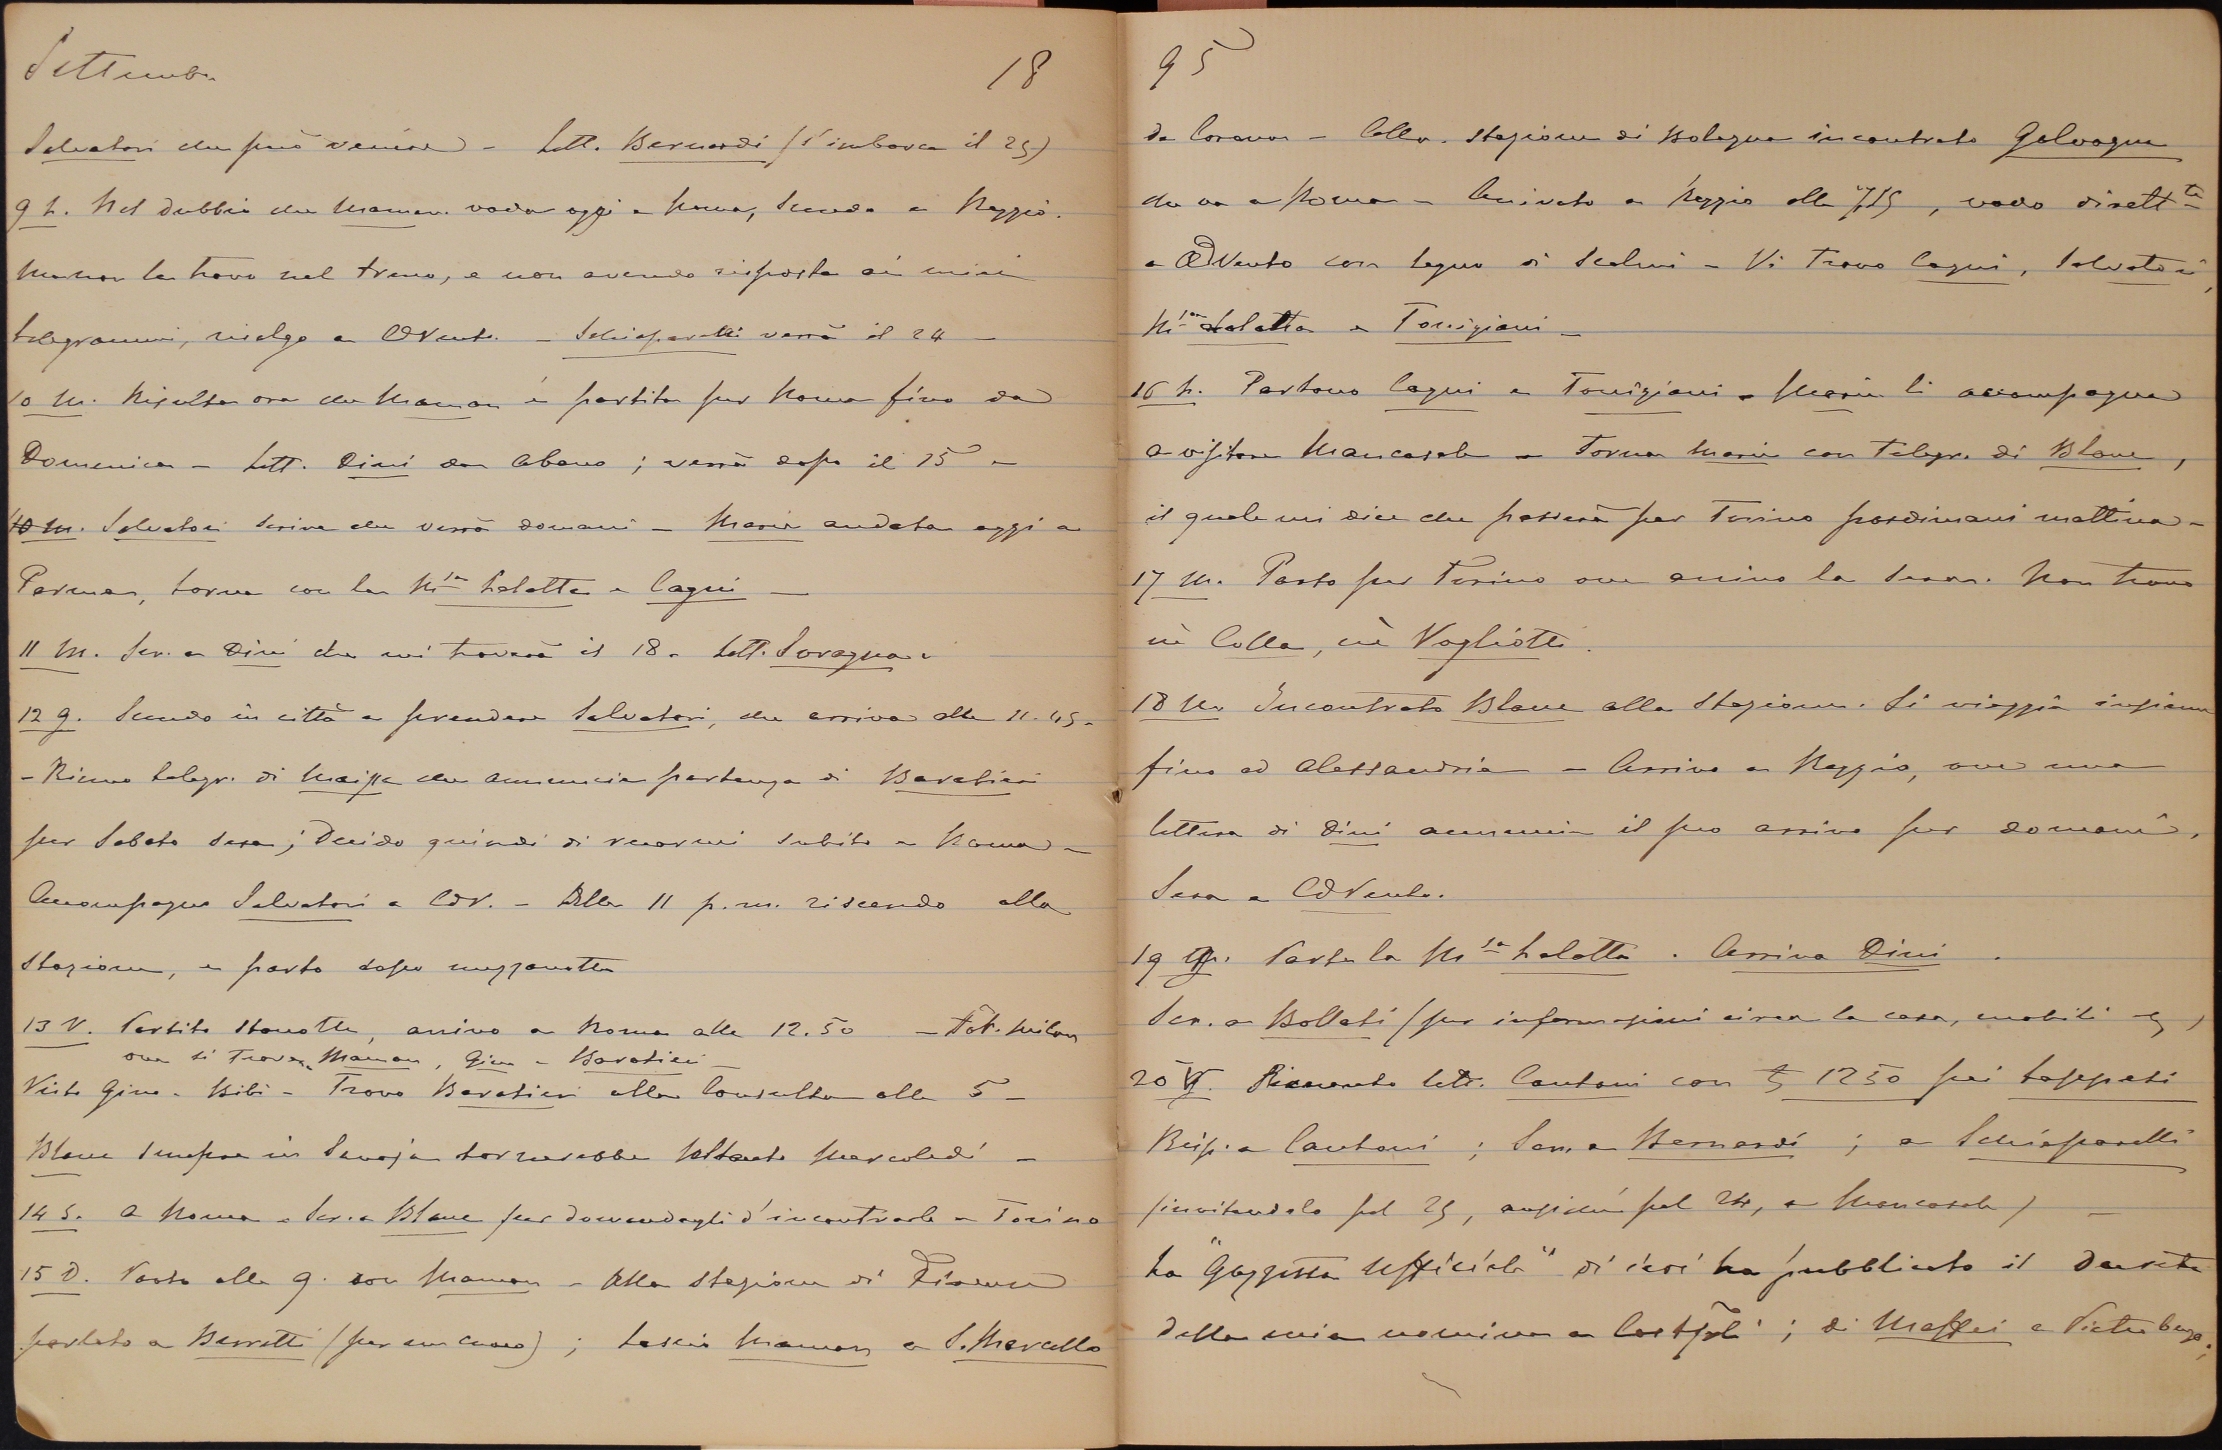 Settembre 18
Salvatori che può venire - Lett. Bernardi (s'imbarca il 25)
9 L. Nel dubbio che Maman vada oggi a Roma, scendo a Reggio.
Ma non la trovo nel treno, e non avendo risposta ai miei
telegrammi, risalgo a CdVento. - Schiaparelli verrà il 24 -
10 M. Risulta ora che Maman è partita per Roma fino da
Domenica - Lett. Dini da Abano; verrà dopo il 15 -
10 M. Salvatori scrive che verrà domani - Marie andata oggi a
Parma, torna con la Msa Lalatta e Cagni -
11 M. Scr. a Dini che mi troverà il 18 - Lett. Soragna -
12 g. Scendo in città a prendere Salvatori, che arriva alle 11.45 -
- Ricevo telegr. di che annuncia partenza di Baratieri
per Sabato sera; decido quindi di recarmi subito a Roma -
Accompagno Salvatori a CdV. - Alle 11 p.m. riscendo alla
stazione, e parto dopo mezzanotte
13 V. Partito stanotte, arrivo a Roma alle 12.50 - Hôt. Milan
ove si trova Maman, Gino e Baratieri -
Visto Gino - Bibi - Trovo Baratieri alla Consulta alle 5 -
Blanc sempre in Savoja tornerebbe soltanto Mercoledì -
14 S. A Roma - Scr. a Blanc per domandargli d'incontrarlo a Torino
15 D. Parto alle 9. con Maman - Alla stazione di Firenze
parlato a Berretti (per un cuoco); lascio Maman a S. Marcello
95
da Corana - Alla stazione di Bologna incontrato Galvagna
che va a Roma - Arrivato a Reggio alle 7.15, vado dirett.te
a CdVento con legno di Scalvi - Vi trovo Cagni, Salvatori,
Msa Lalatta e Torrigiani -
16 L. Partono Cagni e Torrigiani - Marie li accompagna
a visitare Mancasale - Torna Marie con telegr. di Blanc,
il quale mi dice che passerà per Torino posdimani mattina -
17 M. Parto per Torino ove arrivo la sera. Non trovo
nè Colla, nè Vogliotti.
18 M. Incontrato Blanc alla stazione. Si viaggia insieme
fino ad Alessandria - Arrivo a Reggio, ove una
lettera di Dini annuncia il suo arrivo per domani.
Sera a CdVento.
19 g. Parte la Msa Lalatta. Arriva Dini.
Scr. a Bollati (per informazioni circa la casa, mobili
20 V. Ricevuto lett. Cantoni con 1250 pei tappeti
Risp. a Cantoni; Scr. a Bernardi; a Schiaparelli
(invitandolo pel 25, anzichè pel 24, a Mancasale) -
La "Gazzetta Ufficiale" di ieri ha pubblicato il decreto
della mia nomina a Costpoli; di Maffei a Pietroburgo;